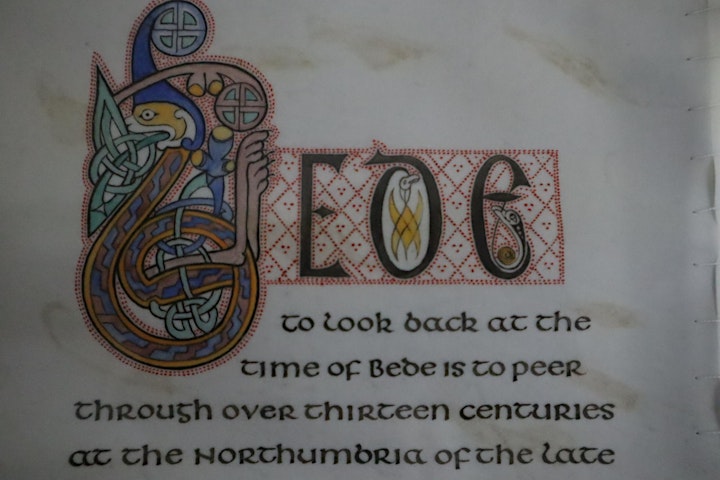 BEDE
to look back at the
time of Bede is to peer
through over thirteen centuries
at the Northumbria of the late